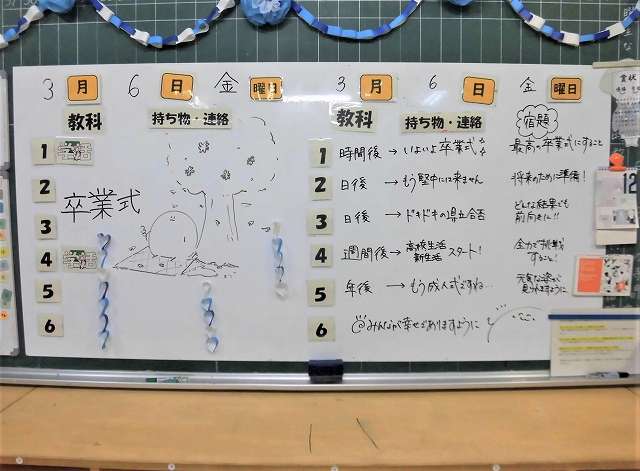 3 月 6 日 金 曜日
教科 持ち物・連絡
1 学活
2
卒業式
3
4 学活
5
6
3 月 6 日 金 曜日
教科 持ち物・連絡 宿題
1 時間後 → いよいよ卒業式 最高の卒業式にすること
2 日後 → もう堅中には来ません 将来のために準備!
3 日後 → ドキドキの県立合否 どんな結果でも
前向きに!!
4 週間後 → 高校生活
新生活 スタート! 全力で挑戦
すること!
5 年後 → もう成人式ですね… 元気な姿で
見られますように
6 @みんなが幸せでありますように
賞状
12